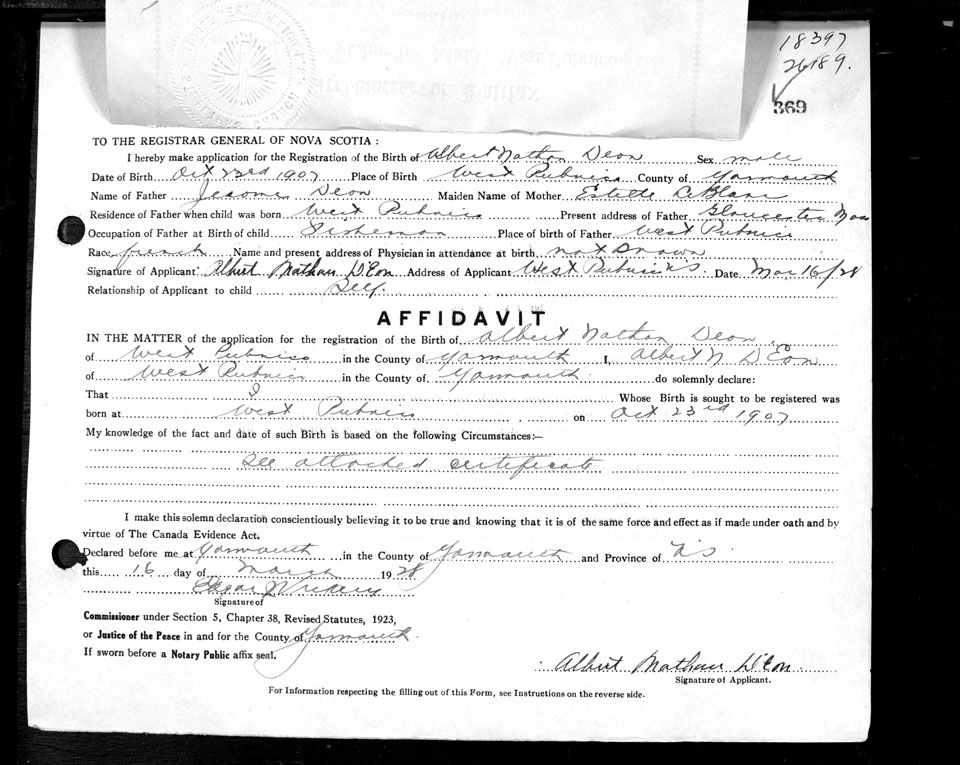 18397
26189.
369
TO THE REGISTRAR GENERAL OF NOVA SCOTIA :
I hereby make application for the Registration of the Birth of Albert Nathan Deon Sex male
Date of Birth Oct 23rd 1907 Place of Birth West Pubnico County of Yarmouth
Name of Father Jerome Deon Maiden Name of Mother Estelle LeBlanc
Residence of Father when child was born West Pubnico Present address of Father Gloucester, Mass
Occupation of Father at Birth of child Fisherman Place of birth of Father West Pubnico
Race french Name and present address of Physician in attendance at birth not Known
Signature of Applicant Albert Nathan D'Eon Address of Applicant West Pubnico N S. Date Mar 16/28
Relationship of Applicant to child Self.
AFFIDAVIT
IN THE MATTER of the application for the registration of the Birth of Albert Nathan Deon
of West Pubnico in the County of Yarmouth I, Albert N D'Eon
of West Pubnico in the County of Yarmouth do solemnly declare:
That I Whose Birth is sought to be registered was
born at West Pubnico on Oct 23rd 1907
My knowledge of the fact and date of such Birth is based on the following Circumstances:—
See attached certificate
I make this solemn declaration conscientiously believing it to be true and knowing that it is of the same force and effect as if made under oath and by
virtue of The Canada Evidence Act.
Declared before me at Yarmouth in the County of Yarmouth and Province of N S
this 16 day of March 1928
Signature of
Commissioner under Section 5, Chapter 38, Revised Statutes, 1923,
or Justice of the Peace in and for the County of Yarmouth.
If sworn before a Notary Public affix seal.
Albert Nathan D'Eon
Signature of Applicant.
For Information respecting the filling out of this Form, see Instructions on the reverse side.